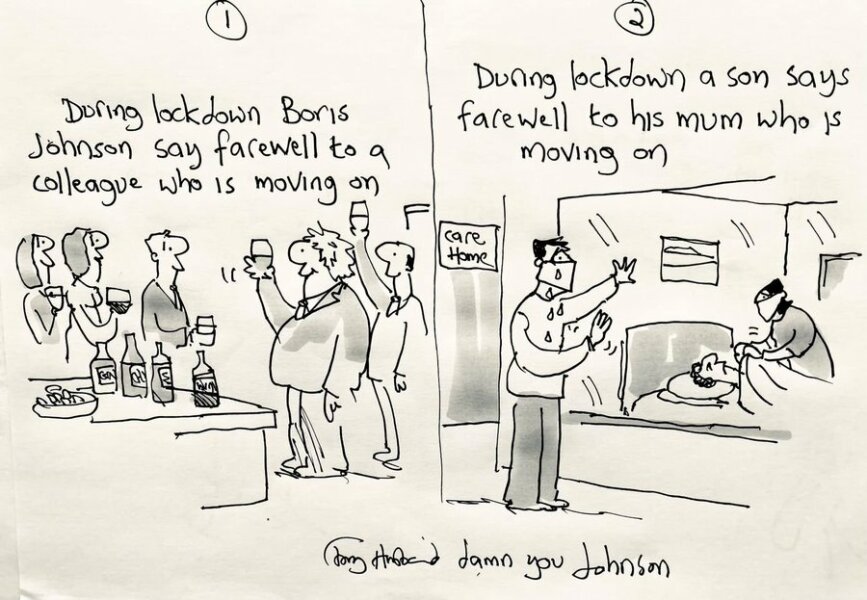 1
During lockdown Boris
Johnson say farewell to a
colleague who is moving on
2
During lockdown a son says
farewell to his mum who is
moving on
care
Home
damn you Johnson